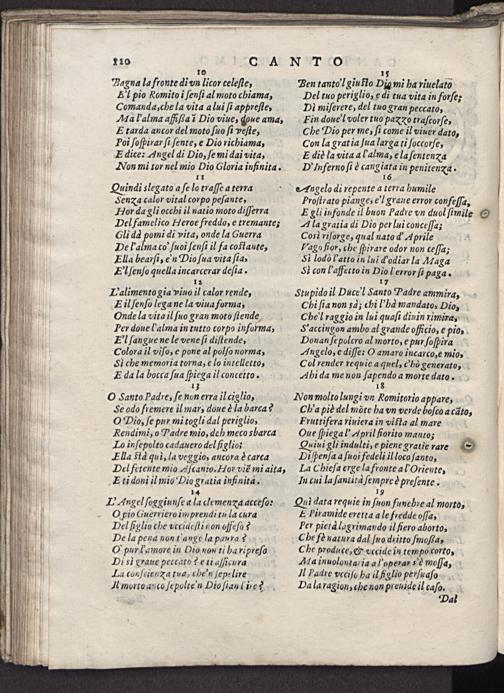 120 CANTO
10
Bagna la fronte di vn licor celeste,
E'l pio Romito i sensi al moto chiama,
Comanda, che la vita a lui si appreste,
Ma l'alma affisa ĩ Dio viue, doue ama,
E tarda ancor del moto suo si veste,
Poi sospirar si sente, e Dio richiama,
E dice: Angel di Dio, se mi dai vita,
Non mi tor nel mio Dio Gloria infinita.
11
Quindi slegato a se lo trasse a terra
Senza calor vital corpo pesante,
Hor da gli occhi il natio moto disserra
Del famelico Heroe freddo, e tremante;
Gli dà pomi di vita, onde la Guerra
De l'alma co' suoi sensi il fa costante,
Ella bearsi, e'n Dio sua vita sia,
E'l senso quella incarcerar desia.
12
L'alimento gia viuo il calor rende,
E il senso lega ne la viua forma,
Onde la vita il suo gran moto stende
Per doue l'alma in tutto corpo informa,
E'l sangue ne le vene si distende,
Colora il viso, e pone al polso norma,
Sì che memoria torna, e lo intelletto,
E da la bocca sua spiega il concetto.
13
O Santo Padre, se non erra il ciglio,
Se odo fremere il mar, doue è la barca?
O Dio, se pur mi togli dal periglio,
Rendimi, o Padre mio, deh meco sbarca
Lo insepolto cadauero del figlio;
Ella stà quì, la veggio, ancora è carca
Del fetente mio Ascanio. Hor viẽ mi aita,
E ti doni il mio Dio gratia infinita.
14
L'Angel soggiunse a la clemenza acceso:
O pio Guerriero imprendi tu la cura
Del figlio che vccidesti non offeso?
De la pena non t'ange la paura?
O' pur l'amore in Dio non ti ha ripreso
Di sì graue peccato? e ti assicura
La conscienza tua, che'n sepelire
Il morto anco sepolte'n Dio sian l'ire?
15
Ben tanto'l giusto Dio mi ha riuelato
Del tuo periglio, e di tua vita in forse;
Di miserere, del tuo gran peccato,
Fin doue'l voler tuo pazzo trascorse,
Che Dio per me, sì come il viuer dato,
Con la gratia sua larga ti soccorse,
E diè la vita a l'alma, e la sentenza
D'Inferno si è cangiata in penitenza.
16
Angelo di repente a terra humile
Prostrato piange, e'l graue error confessa,
E gli infonde il buon Padre vn duol simile
A la gratia di Dio per lui concessa;
Così risorge, qual nato d'Aprile
Vago fior, che spirare odor non cessa;
Sì lodò l'atto in lui d'odiar la Maga
Sì con l'affetto in Dio l'error si paga.
17
Stupido il Duce'l Santo Padre ammira,
Chi sia non sà; chi l'hà mandato, Dio,
Che'l raggio in lui quasi diuin rimira,
S'accingon ambo al grande officio, e pio,
Donan sepolcro al morto, e pur sospira
Angelo, e disse: O amaro incarco, e mio,
Col render requie a quel, c'hò generato,
Ahi da me non sapendo a morte dato.
18
Non molto lungi vn Romitorio appare,
Ch'a piè del mõte ha vn verde bosco a cãto,
Fruttifera riuiera in vista al mare
Oue spiega l'April fiorito manto;
Quiui gli indulti, e piene gratie rare
Dispensa a suoi fedeli il loco santo,
La Chiesa erge la fronte a l'Oriente,
In cui la santità sempre è presente.
19
Quì data requie in suon funebre al morto,
E Piramide eretta a le fredde ossa,
Per pietà lagrimando il fiero aborto,
Che fè natura dal suo dritto smossa,
Che produce, & vccide in tempo corto,
Ma inuolontaria a l'operar s'è mossa,
Il Padre vcciso ha il figlio persuaso
Da la ragion, che non preuide il caso.
Dal